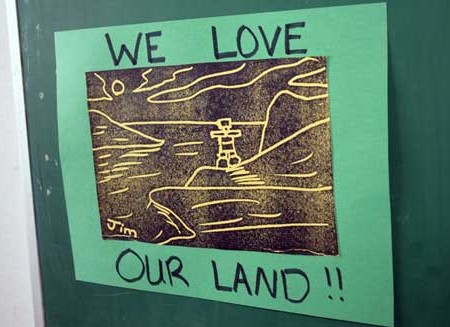 WE LOVE
Jim
OUR LAND !!